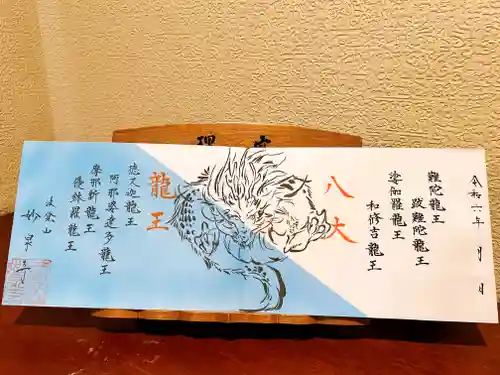 令和六年 月 日
難陀龍王
跋難陀龍王
娑伽羅龍王
和修吉龍王
八大
龍王
徳叉迦龍王
阿那婆達多龍王
摩那斯龍王
優鉢羅龍王
妙泉寺